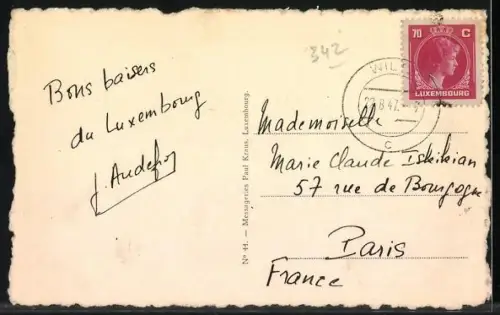 342
70 C
LUXEMBOURG
WIL
8.47
C
Bons baisers
du Luxembourg
Nº 44. — Messageries Paul Kraus, Luxembourg.
Mademoiselle
Marie Claude Iskikian
57 rue de Bourgogne
Paris
France